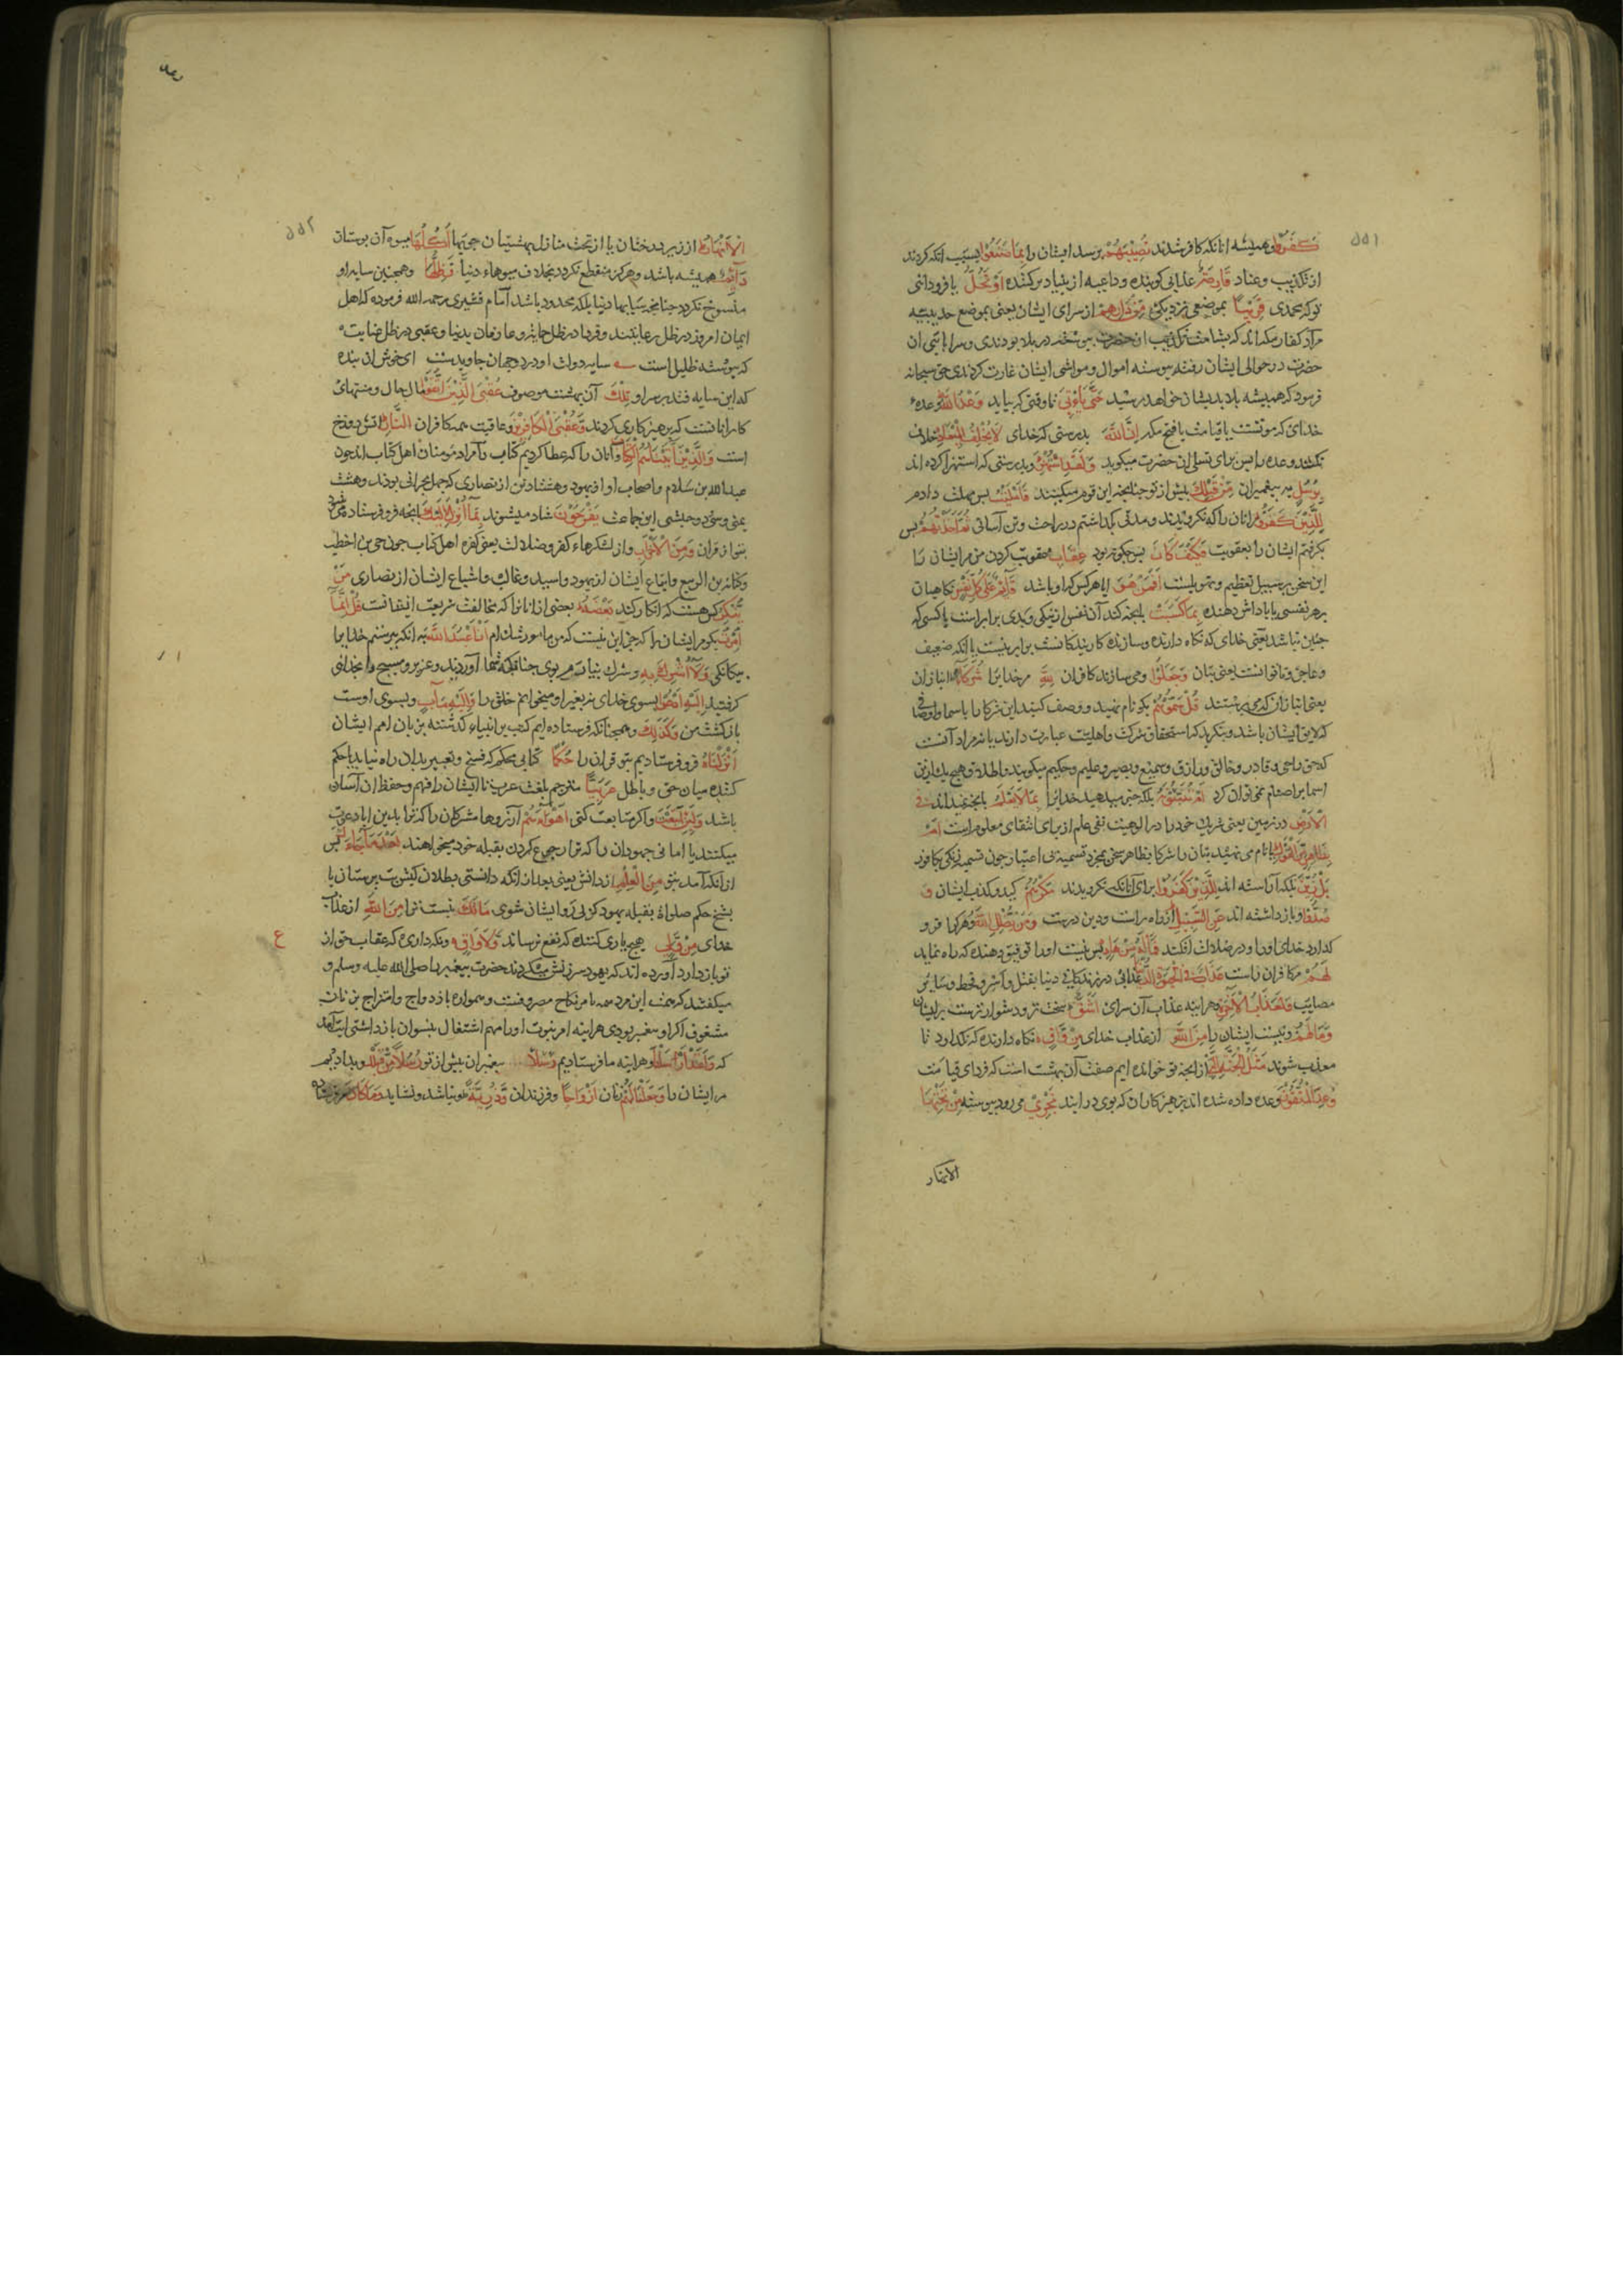 ۵۵۱
كَفَرُوا همیشه انانکه کافر شدند تُصِيبُهُمْ برسد ایشان را بِمَا صَنَعُوا بسبب انکه کردند
از تکذیب وعناد قَارِعَةٌ عذابی کوبنده و داعیه از بنیاد برکننده أَوْ تَحُلُّ یا فرود ائی
تو که محمدی قَرِيبًا بموضعی نزدیک مِّن دَارِهِمْ از سرای ایشان یعنی بموضع حدیبیه
مراد کفار مکه اند که بشامت تکذیب ان حضرت پیوسته در بلا بودندی و سرایا نبی ان
حضرت در حوالی ایشان رفته پیوسته اموال و مواشی ایشان غارت کردندی حق سبحانه
فرمود که همیشه بلا بدیشان خواهد رسید حَتَّىٰ يَأْتِيَ تا وقتی که بیاید وَعْدُ اللَّهِ وعده
خدای که موتست یا قیامت یا فتح مکه إِنَّ اللَّهَ بدرستی که خدای لَا يُخْلِفُ الْمِيعَادَ خلاف
نکند وعده را پس برای تسلی ان حضرت میکوید وَلَقَدِ اسْتُهْزِئَ و بدرستی که استهزا کرده اند
بِرُسُلٍ بر پیغمبران مِّن قَبْلِكَ پیش از تو چنانچه این قوم میکنند فَأَمْلَيْتُ پس مهلت دادم
لِلَّذِينَ كَفَرُوا مر انان را که نکرویدند و مدتی بکذاشتم در راحت و تن آسانی ثُمَّ أَخَذْتُهُمْ پس
بکرفتم ایشان را بعقوبت فَكَيْفَ كَانَ پس چکونه بود عِقَابِ عقوبت کردن من مر ایشان را
این سخن بر سبیل تعظیم و تهویلست أَفَمَنْ هُوَ ایا هر کس که او باشد قَائِمٌ عَلَىٰ كُلِّ نَفْسٍ نکاهبان
بر هر نفسی یا پاداش دهنده بِمَا كَسَبَتْ بانچه کند آن نفس از نیکی و بدی برابر است با کسی که
چنین نباشد یعنی خدای که نکاه دارنده و سازنده کار بندکانست برابر نیست با انکه ضعیف
و عاجز و ناتوانست یعنی بتان وَجَعَلُوا و می سازند کافران لِلَّهِ مر خدایرا شُرَكَاءَ انبازان
یعنی انبازان که می پرستند قُلْ سَمُّوهُمْ بکو نام نهید و وصف کنید این شرکا را باسما و اوصافی
که لایق ایشان باشد و بنکرید که استحقاق شرکت و اهلیت عبادت دارند یا نه مراد آنست
که حق را حی و قادر و خالق و رازق و سمیع و بصیر و علیم و حکیم میکویند و اطلاق هیچ یک ازین
اسما بر اصنام نمی توان کرد أَمْ تُنَبِّئُونَهُ بلکه خبر میدهید خدایرا بِمَا لَا يَعْلَمُ بانچه نمیداند فِي
الْأَرْضِ در زمین یعنی شریک خود را در الوهیت نفی علم از برای انتفای معلوم است أَم
بِظَاهِرٍ مِّنَ الْقَوْلِ یا نام می نهید بتان را شرکا بظاهر سخن بمجرد تسمیه بی اعتبار چون تسمیه زنکی بکافور
بَلْ زُيِّنَ بلکه آراسته اند لِلَّذِينَ كَفَرُوا برای آنانکه نکرویدند مَكْرُهُمْ کید و کذب ایشان وَ
صُدُّوا و بازداشته اند عَنِ السَّبِيلِ از راه راست و دین درست وَمَن يُضْلِلِ اللَّهُ و هر کرا فرو
کذارد خدای او را و در ضلالت افکند فَمَا لَهُ مِنْ هَادٍ پس نیست او را توفیق دهنده که راه نماید
لَّهُمْ مر کافران راست عَذَابٌ فِي الْحَيَاةِ الدُّنْيَا عذابی در زندکانی دنیا بقتل و اسر و قحط و سایر
مصایب وَلَعَذَابُ الْآخِرَةِ و هر اینه عذاب آن سرای أَشَقُّ سخت تر و دشوارترست بر ایشان
وَمَا لَهُم و نیست ایشان را مِّنَ اللَّهِ از عذاب خدای مِن وَاقٍ نکاه دارنده که نکذارد تا
معذب شوند مَّثَلُ الْجَنَّةِ الَّتِي از انچه بتو خوانده ایم صفت آن بهشت است که فردای قیامت
وُعِدَ الْمُتَّقُونَ وعده داده شده اند پرهیزکاران که بوی درایند تَجْرِي می رود پیوسته مِن تَحْتِهَا
الانهار
رعد
۵۵۲
الْأَنْهَارُ از زیر درختان یا از تحت منازل بهشتیان جویها أُكُلُهَا میوه آن بوستان
دَائِمٌ همیشه باشد و هرکز منقطع نکردد بخلاف میوهاء دنیا وَظِلُّهَا و همچنین سایه او
منسوخ نکردد چنانچه سایهاء دنیا بلکه ممدود باشد امام قشیری رحمه الله فرموده که اهل
ایمان امروز در ظل رعایتند و فردا در ظل حمایت و عارفان بدنیا و عقبی در ظل عنایت
که پیوسته ظلیل است سایه دولت او در دو جهان جاویدست ای خوش ان بنده
که این سایه فتد بر سر او تِلْكَ آن بهشت موصوف عُقْبَى الَّذِينَ اتَّقَوا مال حال و منتهای
کار انانست که پرهیزکاری کردند وَّعُقْبَى الْكَافِرِينَ و عاقبت همه کافران النَّارُ اتش دوزخ
است وَالَّذِينَ آتَيْنَاهُمُ الْكِتَابَ و آنان را که عطا کردیم کتاب و مراد مومنان اهل کتاب اند چون
عبدالله بن سلام و اصحاب او از یهود و هشتاد تن از نصاری که چهل نجرانی بودند و هشت
یمنی و سی و دو حبشی این جماعت يَفْرَحُونَ شاد میشوند بِمَا أُنزِلَ إِلَيْكَ بانچه فرو فرستاده میشود
بتو از قران وَمِنَ الْأَحْزَابِ و از لشکرهاء کفر و ضلالت یعنی کفره اهل کتاب چون حی بن اخطب
و کنانه بن الربیع و اتباع ایشان از یهود و اسید و عاقب و اشیاع ایشان از نصاری مَن
يُنكِرُ کس هست که انکار کند بَعْضَهُ بعضی از انرا که مخالفت شریعت ایشانست قُلْ إِنَّمَا
أُمِرْتُ بکو مر ایشان را که جز این نیست که من مامور شده ام أَنْ أَعْبُدَ اللَّهَ به انکه بپرستم خدایرا
بیکانکی وَلَا أُشْرِكَ بِهِ و شرک نیارم بوی چنانکه شما آوردید و عزیر و مسیح را بخدائی
کرفتید إِلَيْهِ أَدْعُو بسوی خدای نه بغیر او میخوانم خلق را وَإِلَيْهِ مَآبِ و بسوی اوست
بازکشت من وَكَذَٰلِكَ و همچنانکه فرستاده ایم کتب بر انبیاء کذشته بزبان امم ایشان
أَنزَلْنَاهُ فرو فرستادیم بتو قران را حُكْمًا کتابی محکم که نسخ و تغییر بدان راه نیابد یا حکم
کننده میان حق و باطل عَرَبِيًّا مترجم بلغت عرب تا ایشان را فهم و حفظ ان آسان
باشد وَلَئِنِ اتَّبَعْتَ و اکر متابعت کنی أَهْوَاءَهُم آرزوها مشرکان را که ترا بدین اباء دعوت
میکنند یا امانی جهودان را که ترا رجوع کردن بقبله خود میخواهند بَعْدَ مَا جَاءَكَ پس
از انکه آمد بتو مِنَ الْعِلْمِ از دانش یعنی بعد از انکه دانستی بطلان کیش بت پرستان یا
نسخ حکم صلواة بقبله یهود که پی رو ایشان شوی مَا لَكَ نیست ترا مِنَ اللَّهِ از عذاب
خدای مِن وَلِيٍّ هیچ یاری کننده که نفع رساند وَلَا وَاقٍ و نکه داری که عقاب حق از
تو باز دارد آورده اند که یهود سرزنش میکردند حضرت پیغمبر را صلی الله علیه وسلم و
میکفتند که همت این مرد همه بامر نکاح مصروفست و همواره بازدواج و امتزاج بزنان
مشغوف اکر او پیغمبر بودی هر اینه امر نبوت او را مهم اشتغال بنسوان بازداشتی ایت آمد
که وَلَقَدْ أَرْسَلْنَا و هر اینه ما فرستادیم رُسُلًا پیغمبران پیش از تو رُسُلًا مِّن قَبْلِكَ و بدادیم
مر ایشان را وَجَعَلْنَا لَهُمْ زنان أَزْوَاجًا و فرزندان وَذُرِّيَّةً نباشد و نشاید وَمَا كَانَ
ع